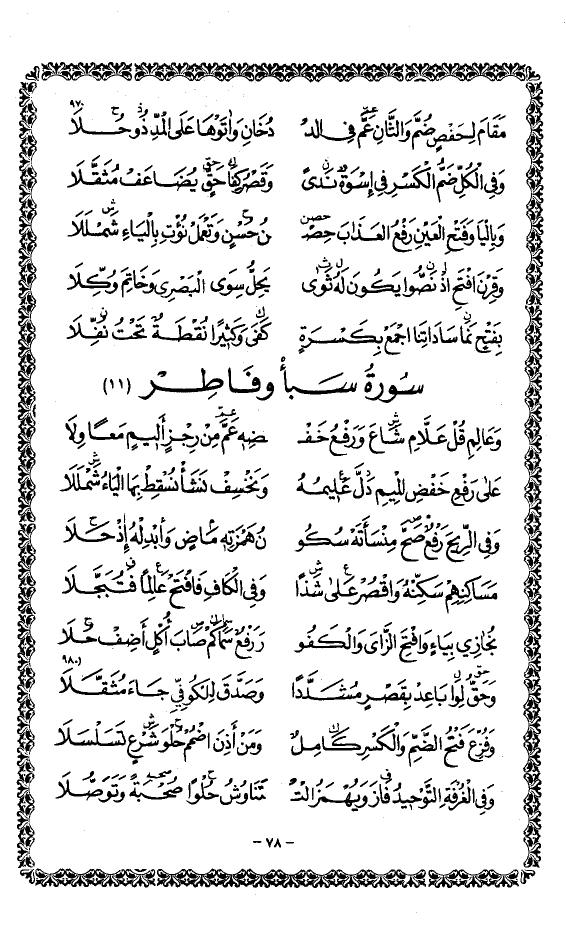 ٩٧٠
مَقَامَ لِحَفْصٍ ضُمَّ وَالثَّانِ عَمَّ فِي الدْ دُخَانِ وَآتَوْهَا عَلَى الْمَدِّ ذُو حُلَا
وَفِي الْكُلِّ ضَمُّ الْكَسْرِ فِي إِسْوَةٌ نَدىً وَقَصْرُ كِفَا حَقٍّ يُضَاعَفْ مُثَقَّلَا
وَبِالْيَا وَفَتْحِ الْعَيْنِ رَفْعُ الْعَذَابَ حِصْ نُ حُسْنٍ وَتَعْمَلْ نُؤْتِ بِالْيَاءِ شَمْلَلَا
وَقَرْنَ افْتَحْ اذْ نَصُّوا يَكُونَ لَهُ ثَوَى يَحِلُّ سِوَى الْبَصْرِي وَخَاتِمَ وُكِّلَا
بِفَتْحٍ نَمَا سَادَاتِنَا اجْمَعْ بِكَسْرَةٍ كَفَى وَكَثِيرًا نُقْطَةٌ تَحْتُ نُفِّلَا
سُورَةُ سَبَأْ وَفَاطِرْ (١١)
وَعَالِمِ قُلْ عَلَّامِ شَاعَ وَرَفْعُ خَفْ ضِهِ عَمَّ مِنْ رِجْزٍ أَلِيمٍ مَعًا وِلَا
عَلَى رَفْعِ خَفْضِ الْمِيمِ دَلَّ عَلِيمُهُ وَنَخْسِفْ نَشَأْ نُسْقِطْ بِهَا الْيَاءُ شَمْلَلَا
وَفِي الرِّيحَ رَفْعٌ صَحَّ مِنْسَأَتَهْ سُكُو نُ هَمْزَتِهِ مَاضٍ وَأَبْدِلْهُ إِذْ حَلَا
مَسَاكِنِهِمْ سَكِّنْهُ وَاقْصُرْ عَلَى شَذًا وَفِي الْكَافِ فَافْتَحْ عَالِمًا فَتُبَجَّلَا
نُجَازِي بِيَاءٍ وَافْتَحِ الزَّايَ وَالْكَفُو رَ رَفْعٌ سَمَا كَمْ صَابَ أُكْلٍ أَضِفْ حُلَا
٩٨٠
وَحَقُّ لِوَا بَاعِدْ بِقَصْرٍ مُشَدَّدًا وَصَدَّقَ لِلْكُوفِيِّ جَاءَ مُثَقَّلَا
وَفُزِّعَ فَتْحُ الضَّمِّ وَالْكَسْرِ كَامِلٌ وَمَنْ أَذِنَ اضْمُمْ حُلْوَ شَرْعٍ تَسَلْسَلَا
وَفِي الْغُرْفَةِ التَّوْحِيدُ فَازَ وَيُهْمَزُ التْ تَنَاوُشُ حُلْوًا صُحْبَةً وَتَوَصُّلَا
- ٧٨ -